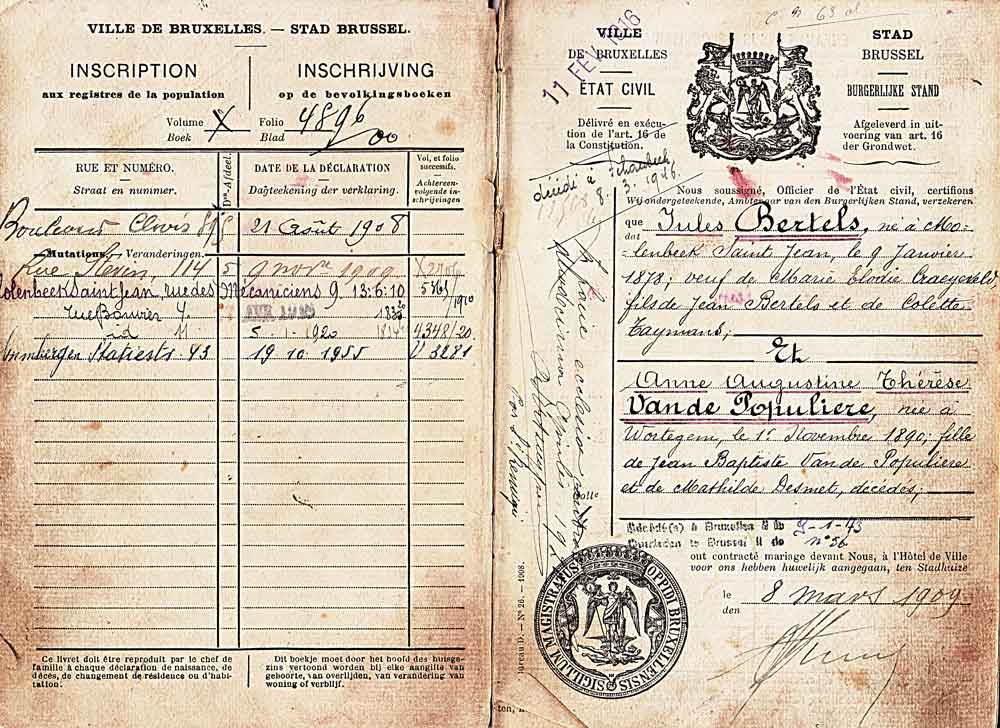 VILLE DE BRUXELLES. — STAD BRUSSEL.
INSCRIPTION
aux registres de la population
INSCHRIJVING
op de bevolkingsboeken
Volume
Boek
X
Folio
Blad
4896
RUE ET NUMÉRO.
Straat en nummer.
DATE DE LA DÉCLARATION
Dagteekening der verklaring.
Vol. et folio
successifs.
Achtereen-
volgende in-
schrijvingen
Boulevard Clovis 89 5 21 Août 1908
Mutations. Veranderingen.
Rue Stevin, 114 5 9 nov. 1909
Molenbeek Saint Jean, rue des Mécaniciens 9 13.6.10 5365/1910
id 11. 5 1 1920 4348/20
Statiestr. 43 19 10 1955 V 3281
Ce livret doit être reproduit par le chef de
famille à chaque déclaration de naissance, de
décès, de changement de résidence ou d'habi-
tation.
Dit boekje moet door het hoofd des huisge-
zins vertoond worden bij elke aangifte van
geboorte, van overlijden, van verandering van
woning of verblijf.
Bureau D. — N° 26. — 1908.
11 FEV 1916
VILLE
DE BRUXELLES
ÉTAT CIVIL
Délivré en exécu-
tion de l'art. 16 de
la Constitution.
STAD
BRUSSEL
BURGERLIJKE STAND
Afgeleverd in uit-
voering van art. 16
der Grondwet.
Nous soussigné, Officier de l'État civil, certifions
Wij ondergeteekende, Ambtenaar van den Burgerlijken Stand, verzekeren
que
dat
Jules Bertels, né à Mo-
lenbeek Saint Jean, le 9 Janvier
1873; veuf de Marie Elodie
fils de Jean Bertels et de Colette
Taymans;
Et
Anne Augustine Thérèse
Vande Populiere, née à
Wortegem, le 1r Novembre 1890; fille
de Jean Baptiste Vande Populiere
et de Mathilde Desmet, décédés;
Décédé(e) à Bruxelles II le 9-1-43
Overleden te Brussel II de n° 56
ont contracté mariage devant Nous, à l'Hôtel de Ville
voor ons hebben huwelijk aangegaan, ten Stadhuize
le
den
8 mars 1909
SIGILLUM MAGISTRATUS OPPIDI BRUXELLENSIS